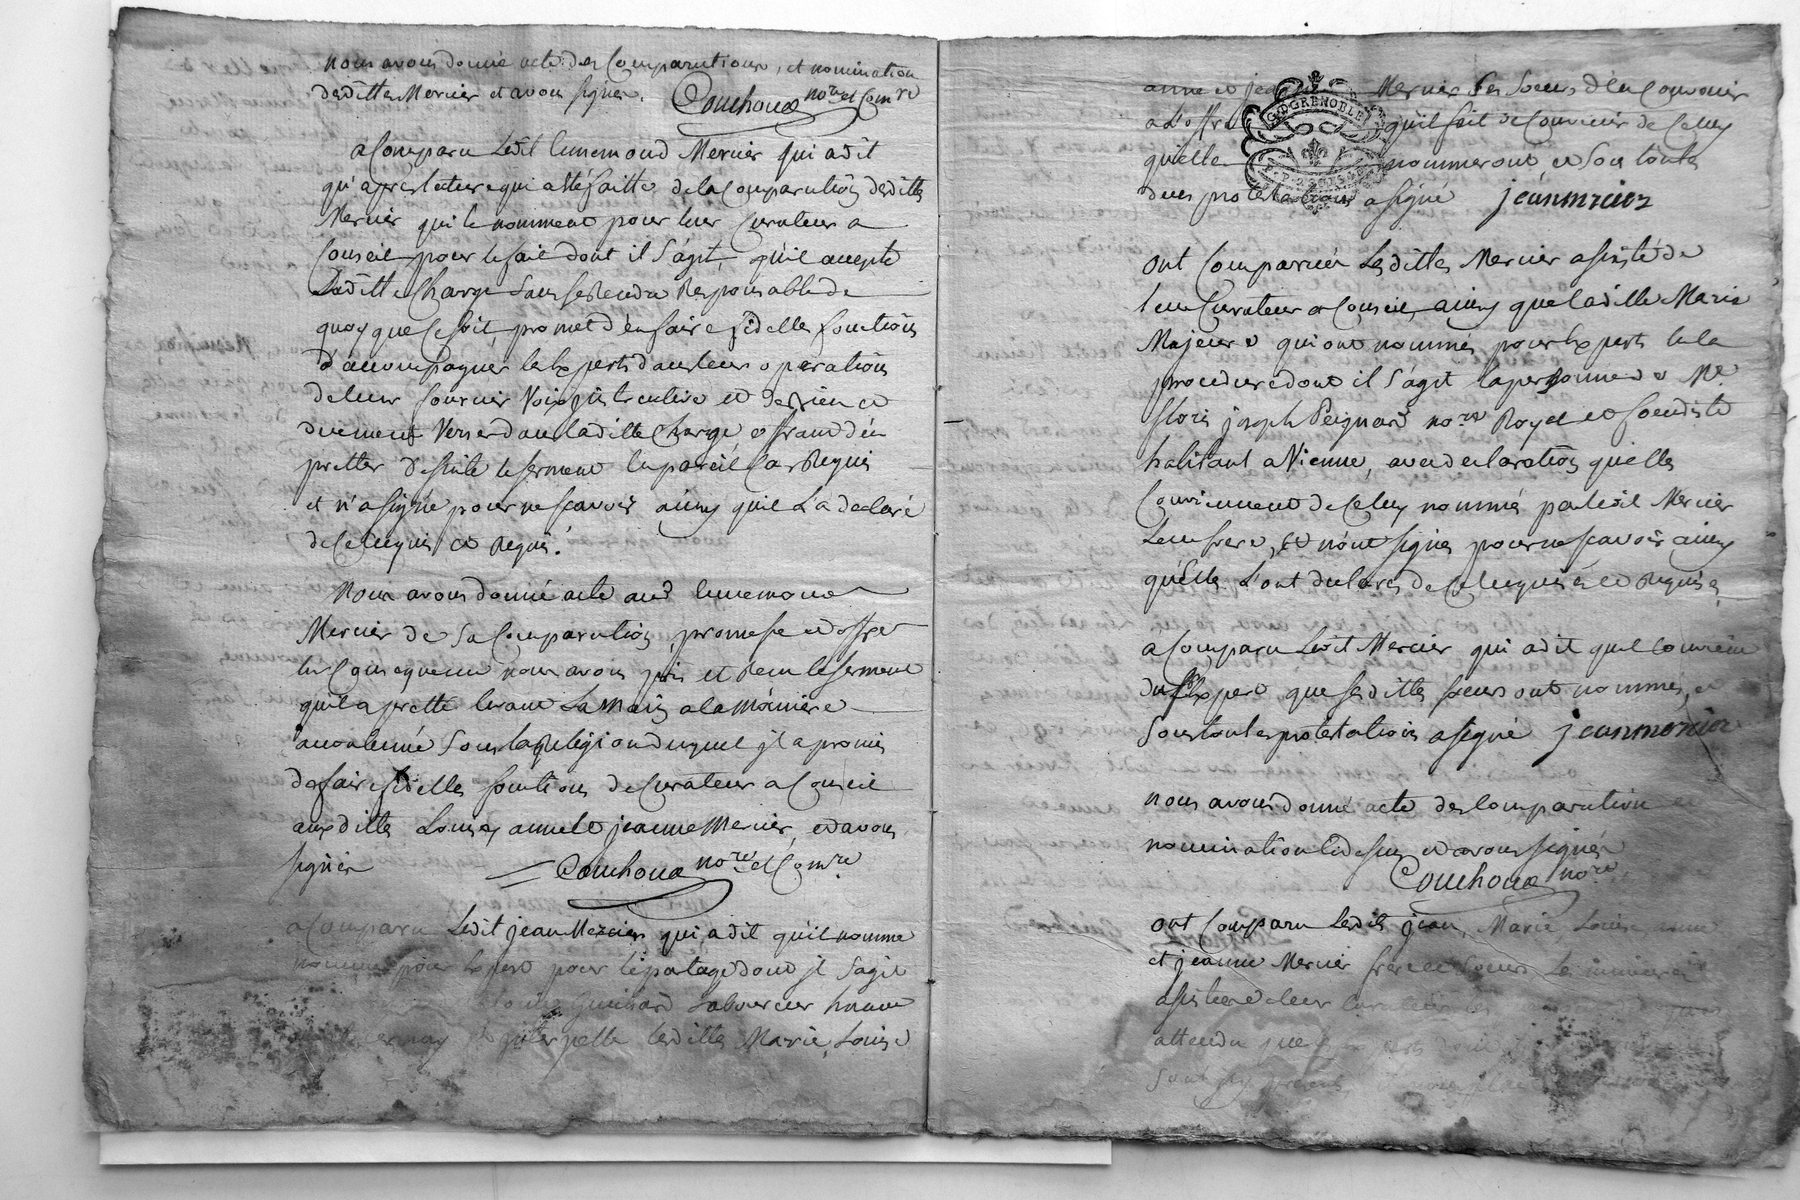 nous avons donné acte des Comparutions, et nomination
desdittes Mercier et avons signer. Couhoud no.re et Com.re
a Comparu Ledit Ennemond Mercier qui a dit
qu'apres lecture qui a etté faitte de la Comparution desdittes
Mercier qui le nomment pour leur Curateur a
Conseil pour le fait dont il S'agit, qu'il accepte
Laditte Charge Sans se Rendre Responsable de
quoy que Ce soit, promet d'en faire fidelles fonctions
d'accompagner les Experts dans leur operations
de leur fournir Voix Instructive et
duement Verser dans laditte Charge, offrant d'en
pretter desuite le serment en pareil Cas Requis
et n'a signé pour ne scavoir ainsy qu'il L'a declaré
de Ce Enquis et Requis.
Nous avons donné acte aud Ennemond
Mercier de Sa Comparution, promesse et offre
En Consequence nous avons pris et Reçu le serment
qu'il a pretté levant La Main a la Manière
accoutumé Sous la Religion duquel il a promis
de faire fidelles fonctions de Curateur a Conseil
auxdittes Louise, anne et jeanne Mercier, et avons
signés Couhoud no.re et Com.re
a Comparu Ledit jean Mercier qui a dit qu'il nomme
pour Expert pour le partage dont il S'agit
Guichard Laboureur
Interpelle lesdittes Marie, Louise
anne et jea Mercier Ses Soeurs d'en Convenir
a L'offre qu'il fait de Convenir de Celuy
qu'elle nommeront et Sous toutes
dues protestations a signé jeanmercier
Ont Comparues Lesdittes Mercier assistés de
leur Curateur a Conseil, ainsy que laditte Marie
Majeure qui ont nommés pour Expert En la
procedure dont il S'agit la personne de M.e
floris joseph Peignard no.re Royal et feudiste
habitant a Vienne, avec declaration qu'elles
Conviennent de Celuy nommé par ledit Mercier
Leur frere, et n'ont signés pour ne scavoir ainsy
qu'Elles L'ont declaré de Ce Enquises et Requises,
a Comparu Ledit Mercier qui a dit qu'il Convient
du Expert que sesdittes soeurs ont nommés, et
Sous toutes protestations a signé jeanmercier
nous avons donné acte des Comparution et
nomination Cy dessus et avons signés
Couhoud no.re
Ont Comparu Lesdits jean, Marie Louise anne
et jeanne Mercier frere et soeurs
assistees de leur Curateur
attendu que Experts dont
Sont